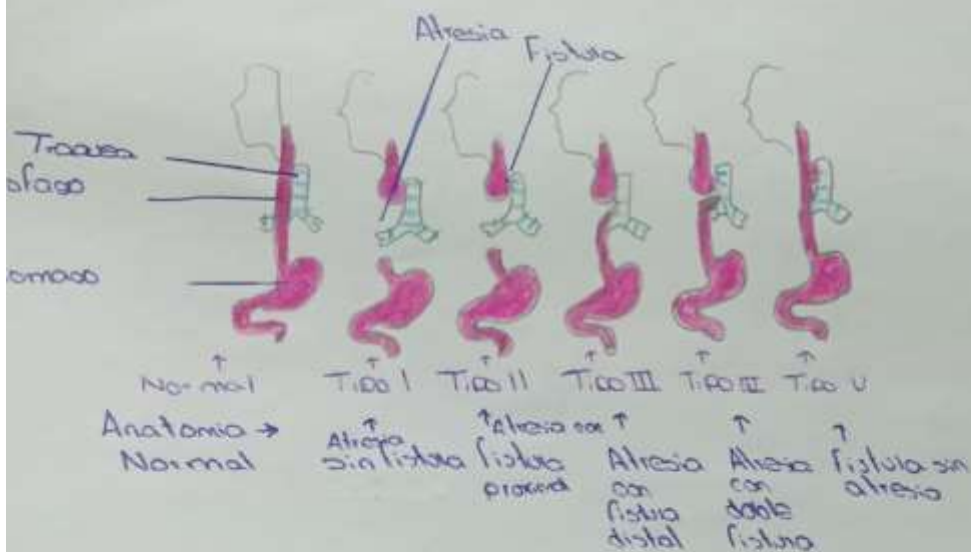 Atresia
Fistula
Traquea
ofago
omago
Normal
Tipo I
Tipo II
Tipo III
Tipo IV
Tipo V
Anatomia
Normal
Atresia
sin fistula
Atresia con
fistula
proximal
Atresia
con
fistula
distal
Atresia
con
doble
fistula
Fistula sin
atresia